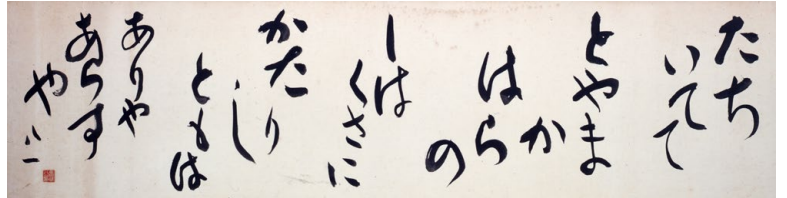 たち
いてて
とやま
か
はら
の
しは
くさに
かたり
し
ともは
ありや
あらす
や
八一